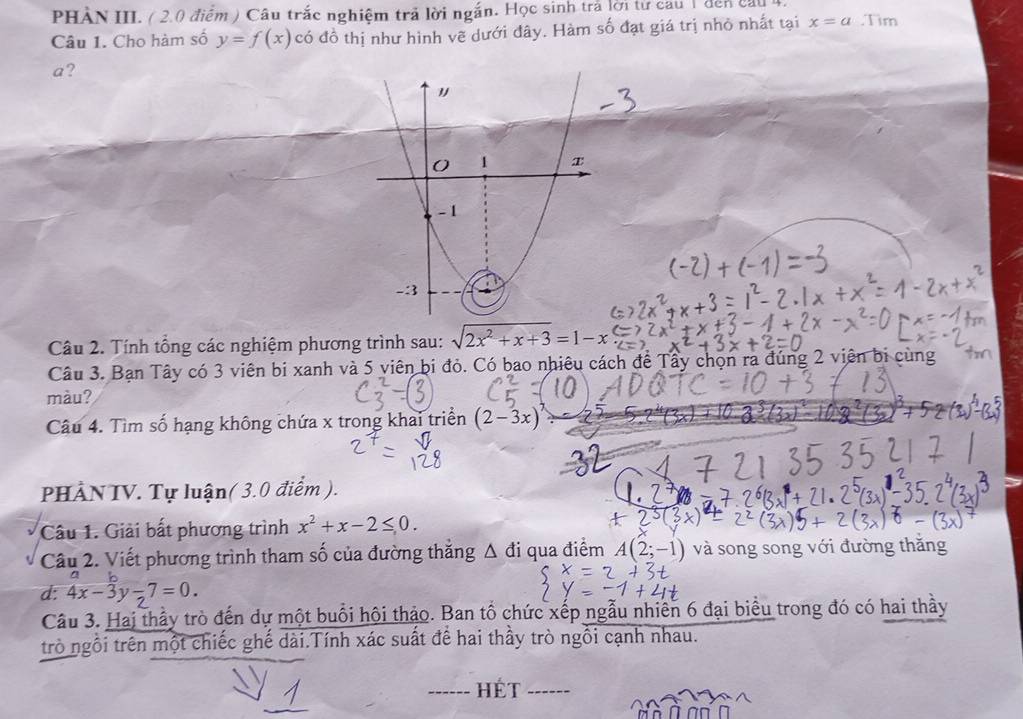 PHẦN III. ( 2.0 điểm ) Câu trắc nghiệm trả lời ngắn. Học sinh trả lời từ câu 1 đến câu 4.
Câu 1. Cho hàm số y = f(x) có đồ thị như hình vẽ dưới đây. Hàm số đạt giá trị nhỏ nhất tại x = a .Tìm
a?
y
-3
O 1 x
-1
-3
(-2) + (-1) = -3
<=> 2x² + x + 3 = 1² - 2.1x + x² = 1 - 2x + x²
<=> 2x² + x + 3 - 1 + 2x - x² = 0
<=> x² + 3x + 2 = 0
[ x = -1 tm
x = -2 tm
Câu 2. Tính tổng các nghiệm phương trình sau: √(2x² + x + 3) = 1 - x
Câu 3. Bạn Tây có 3 viên bi xanh và 5 viên bi đỏ. Có bao nhiêu cách để Tây chọn ra đúng 2 viên bi cùng
màu?
C₃² = 3 C₅² = 10 ADQTC = 10 + 3 = 13
Câu 4. Tìm số hạng không chứa x trong khai triển (2 - 3x)⁷.
2⁷ = 128
32
1 7 21 35 35 21 7 1
1. 2⁷ - 7. 2⁶(3x)¹ + 21. 2⁵(3x)² - 35. 2⁴(3x)³
+ 2³(3x)⁴ - 2²(3x)5 + 2(3x)6 - (3x)⁷
PHẦN IV. Tự luận( 3.0 điểm ).
Câu 1. Giải bất phương trình x² + x - 2 ≤ 0.
x y
Câu 2. Viết phương trình tham số của đường thẳng Δ đi qua điểm A(2;-1) và song song với đường thẳng
a b
d: 4x - 3y - 7 = 0.
{ x = 2 + 3t
y = -1 + 4t
Câu 3. Hai thầy trò đến dự một buổi hội thảo. Ban tổ chức xếp ngẫu nhiên 6 đại biểu trong đó có hai thầy
trò ngồi trên một chiếc ghế dài.Tính xác suất để hai thầy trò ngồi cạnh nhau.
1
------ HẾT ------